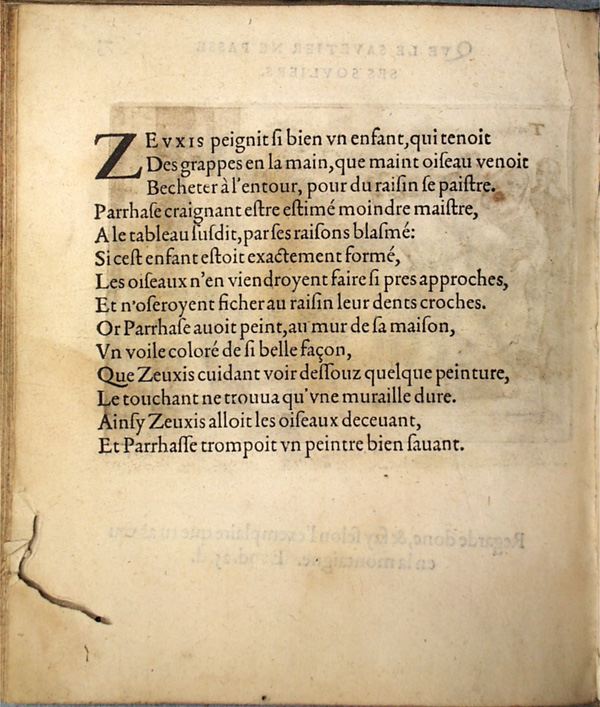 ZEVXIS peignit ſi bien vn enfant, qui tenoit
Des grappes en la main, que maint oiſeau venoit
Becheter à l'entour, pour du raiſin ſe paiſtre.
Parrhaſe craignant eſtre eſtimé moindre maiſtre,
A le tableau ſuſdit, par ſes raiſons blaſmé:
Si ceſt enfant eſtoit exactement formé,
Les oiſeaux n'en viendroyent faire ſi pres approches,
Et n'oſeroyent ficher au raiſin leur dents croches.
Or Parrhaſe auoit peint, au mur de ſa maiſon,
Vn voile coloré de ſi belle façon,
Que Zeuxis cuidant voir deſſouz quelque peinture,
Le touchant ne trouua qu'vne muraille dure.
Ainſy Zeuxis alloit les oiſeaux deceuant,
Et Parrhaſſe trompoit vn peintre bien ſauant.